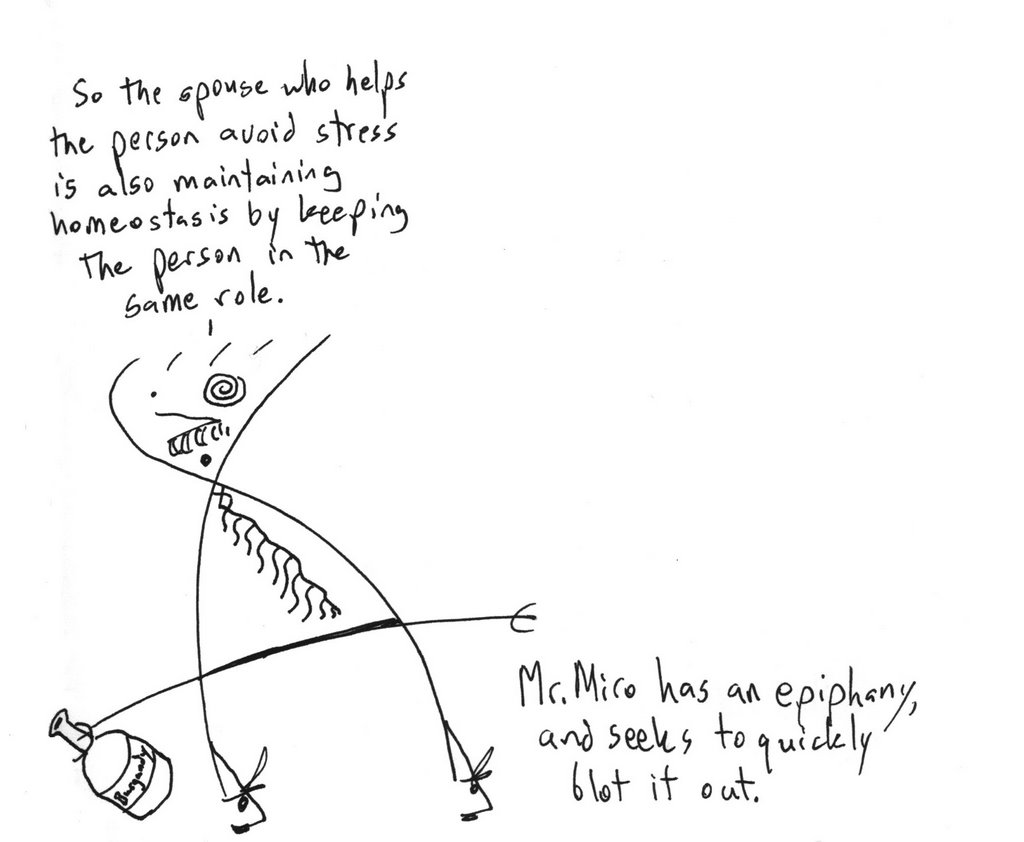 So the spouse who helps
the person avoid stress
is also maintaining
homeostasis by keeping
the person in the
same role.
Burgandy
Mr. Miro has an epiphany,
and seeks to quickly
blot it out.